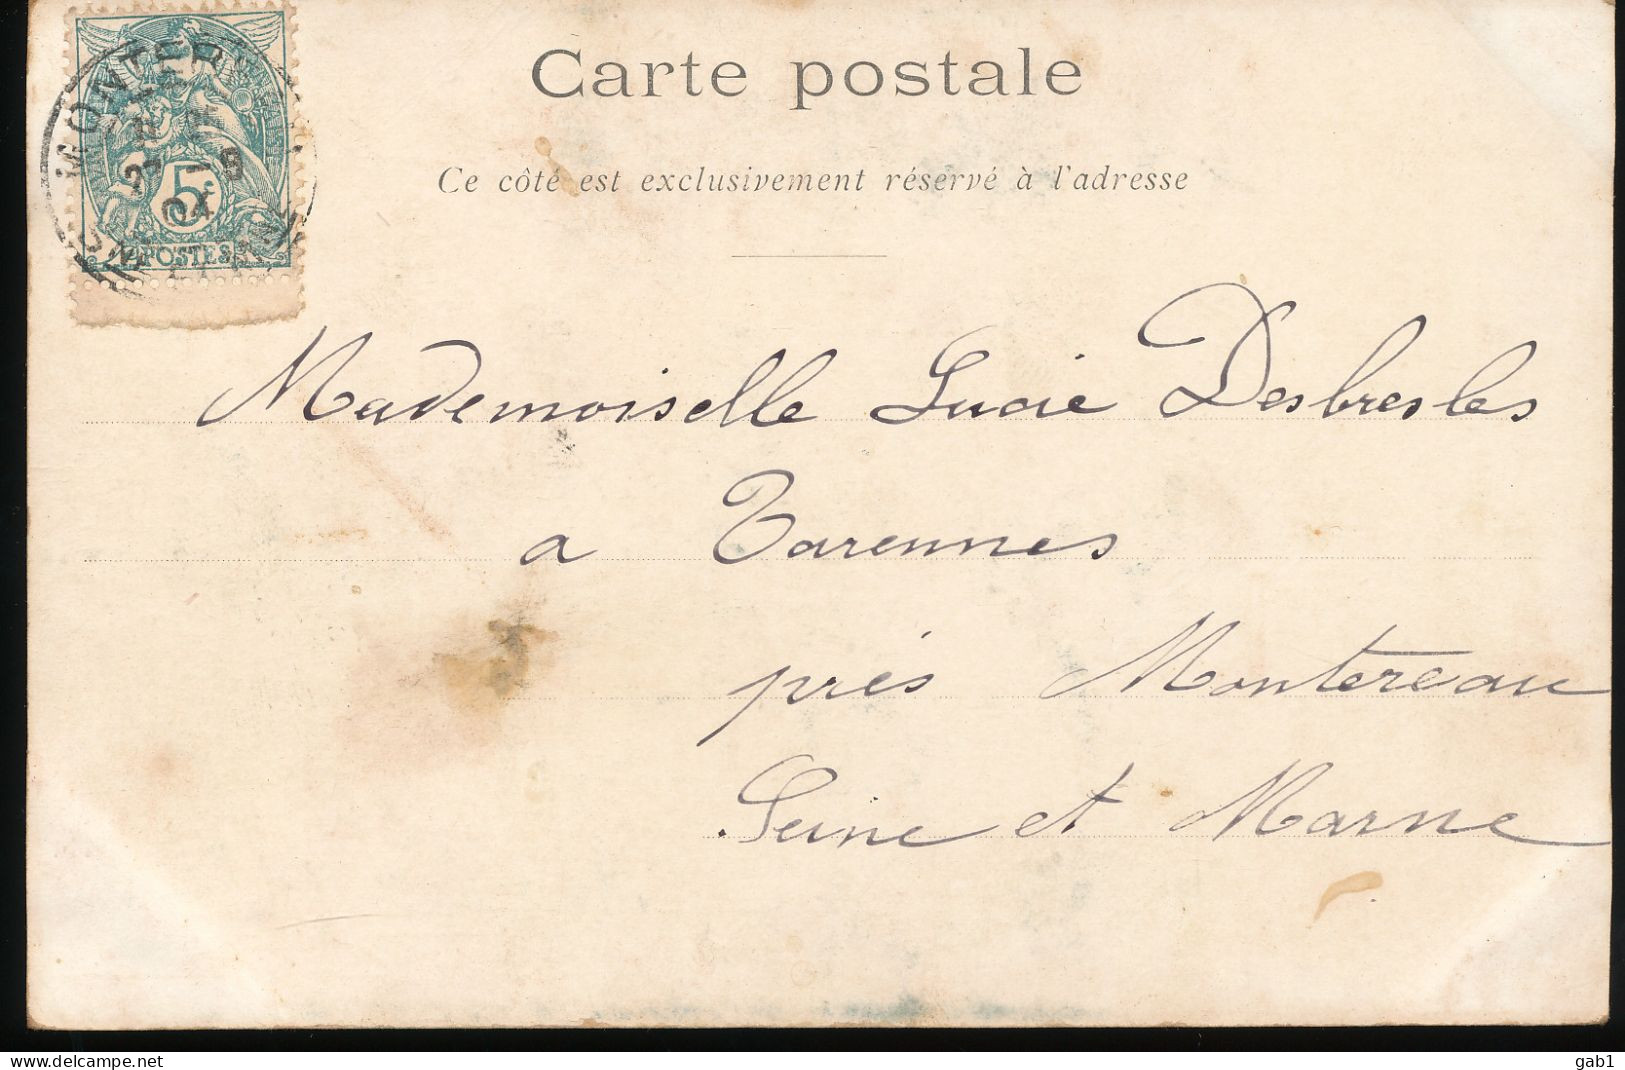 Carte postale
Ce côté est exclusivement réservé à l'adresse
MONTER
-9
04
5c
POSTES
Mademoiselle Lucie Desbresles
a Varennes
près Montereau
Seine et Marne
gab1